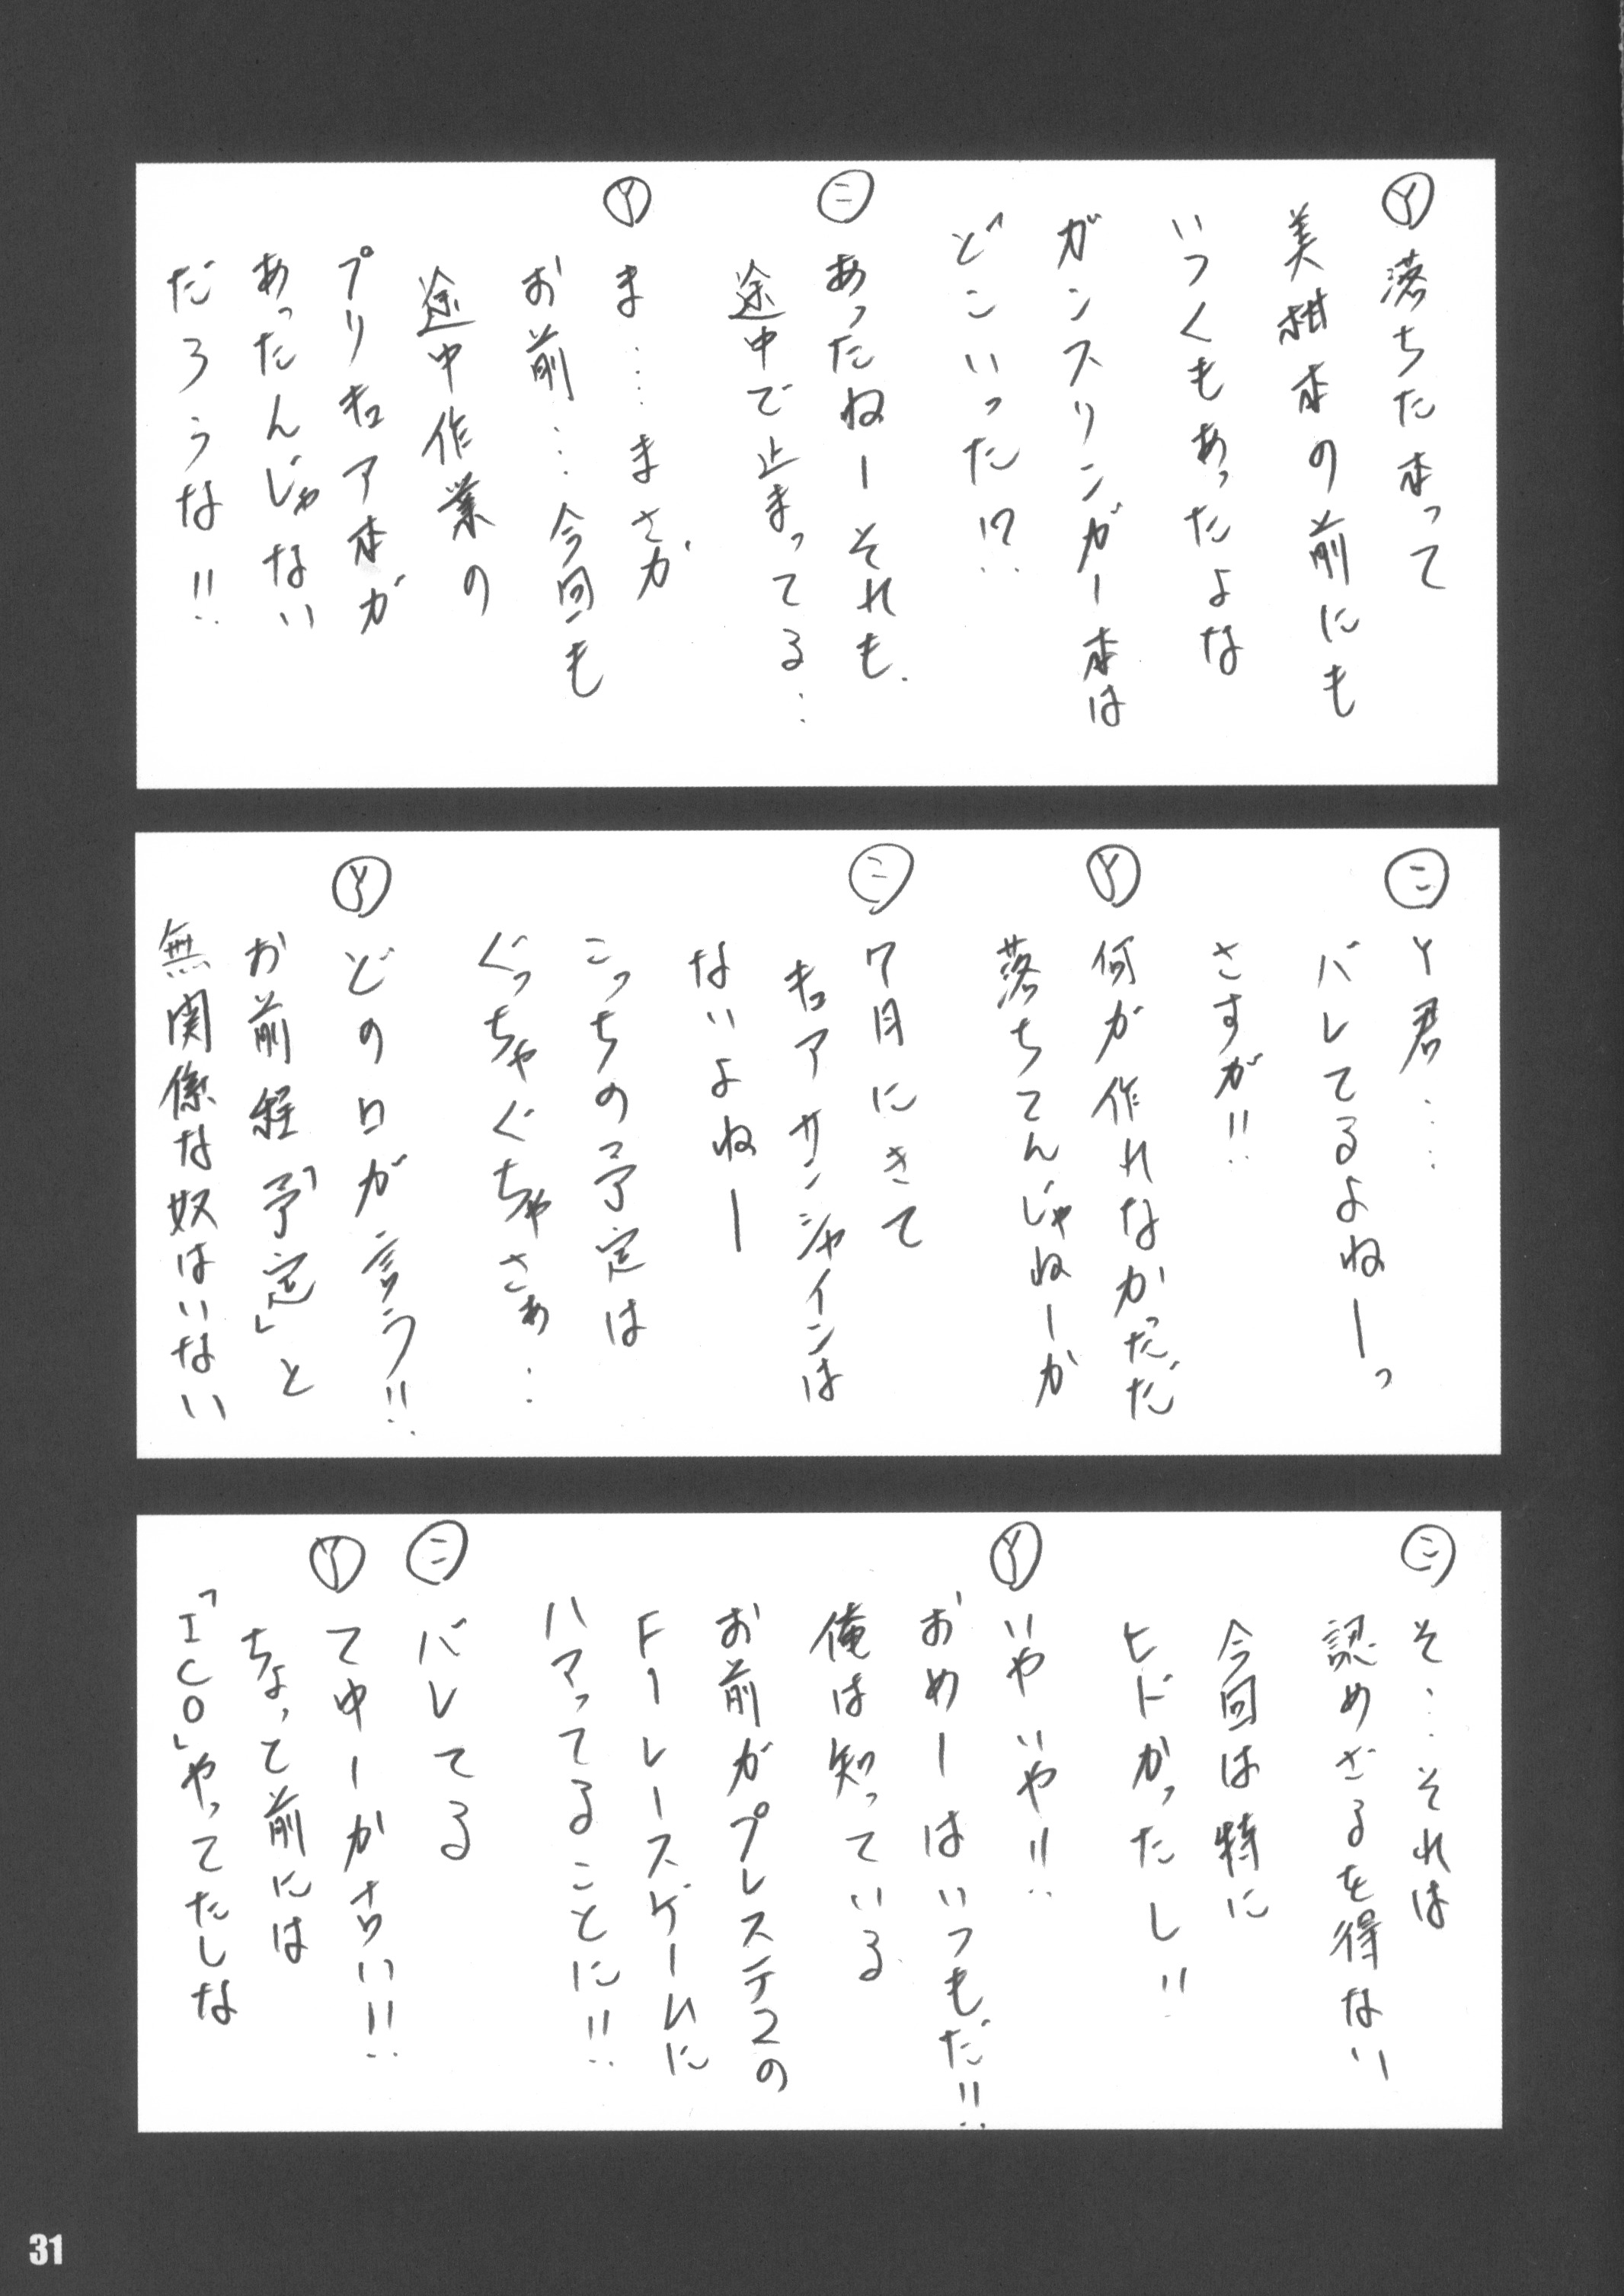 Ⓨ落ちた本って
美柑本の前にも
いつくもあったよな
ガンスリンガー本は
どこいった!?
㊁あったねーそれも.
途中で止まってる…
Ⓨま……まさか
お前……今回も
途中作業の
プリキュア本が
あったんじゃない
だろうな!!
㋙Y君……
バレてるよねーっ
さすが!!
Ⓨ何か作れなかっただ
落ちてんじゃねーか
㋙7月にきて
キュアサンシャインは
ないよねー
こっちの予定は
ぐっちゃぐちゃさぁ…
Ⓨどの口が言う!!
お前程「予定」と
無関係な奴はいない
㋙そ…それは
認めざるを得ない
今回は特に
ヒドかったし!!
Ⓨいやいや!!
おめーはいつもだ!!
俺は知っている
お前がプレステ2の
F1レースゲームに
ハマってることに!!
㋙バレてる
Ⓨて中ーか古い!!
ちょっと前には
「ICO」やってたしな
31